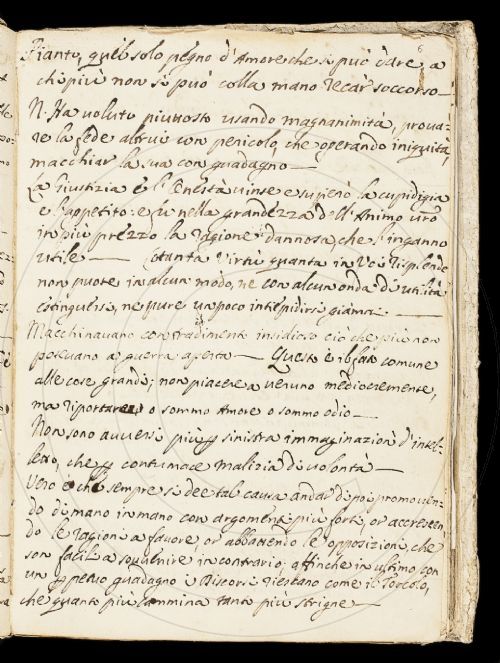 6
Pianto, quel solo pegno d'Amore che si può dare a
chi più non si può colla mano recar soccorso —
N. Ha voluto piuttosto usando magnanimità, prova=
re la fede altrui con pericolo, che operando iniquità
macchiar la sua con guadagno —
La Giustizia e l'Onestà vinse e superò la cupidigia
e l'appetito: e fu nella grandezza dell'Animo
in più prezzo la ragione dannosa, che l'inganno
utile — Cotanta Virtù quanta in Voi risplende
non puote in alcun modo, ne con alcun onda di utilità
estinguersi, ne pure un poco intiepidirsi giamai
Macchinavano con tradimenti insidiosi ciò che più non
potevano a guerra aperta — Questo è il fato comune
alle cose grandi; non piacere a veruno mediocremente,
ma riportare o sommo Amore o sommo odio —
Non sono avversi più per sinistra immaginazion d'intel=
letto, che per contumace malizia di volontà —
Vero è che sempre si dee tal causa andar di poi promoven=
do di mano in mano con argomenti più forti, or accrescen
do le ragioni a favore or abbattendo le opposizioni, che
son facili a sovvenire in contrario; affinche in ultimo con
un perpetuo guadagno i Discorsi riescano come il Torcolo,
che quanto più cammina tanto più strigne —